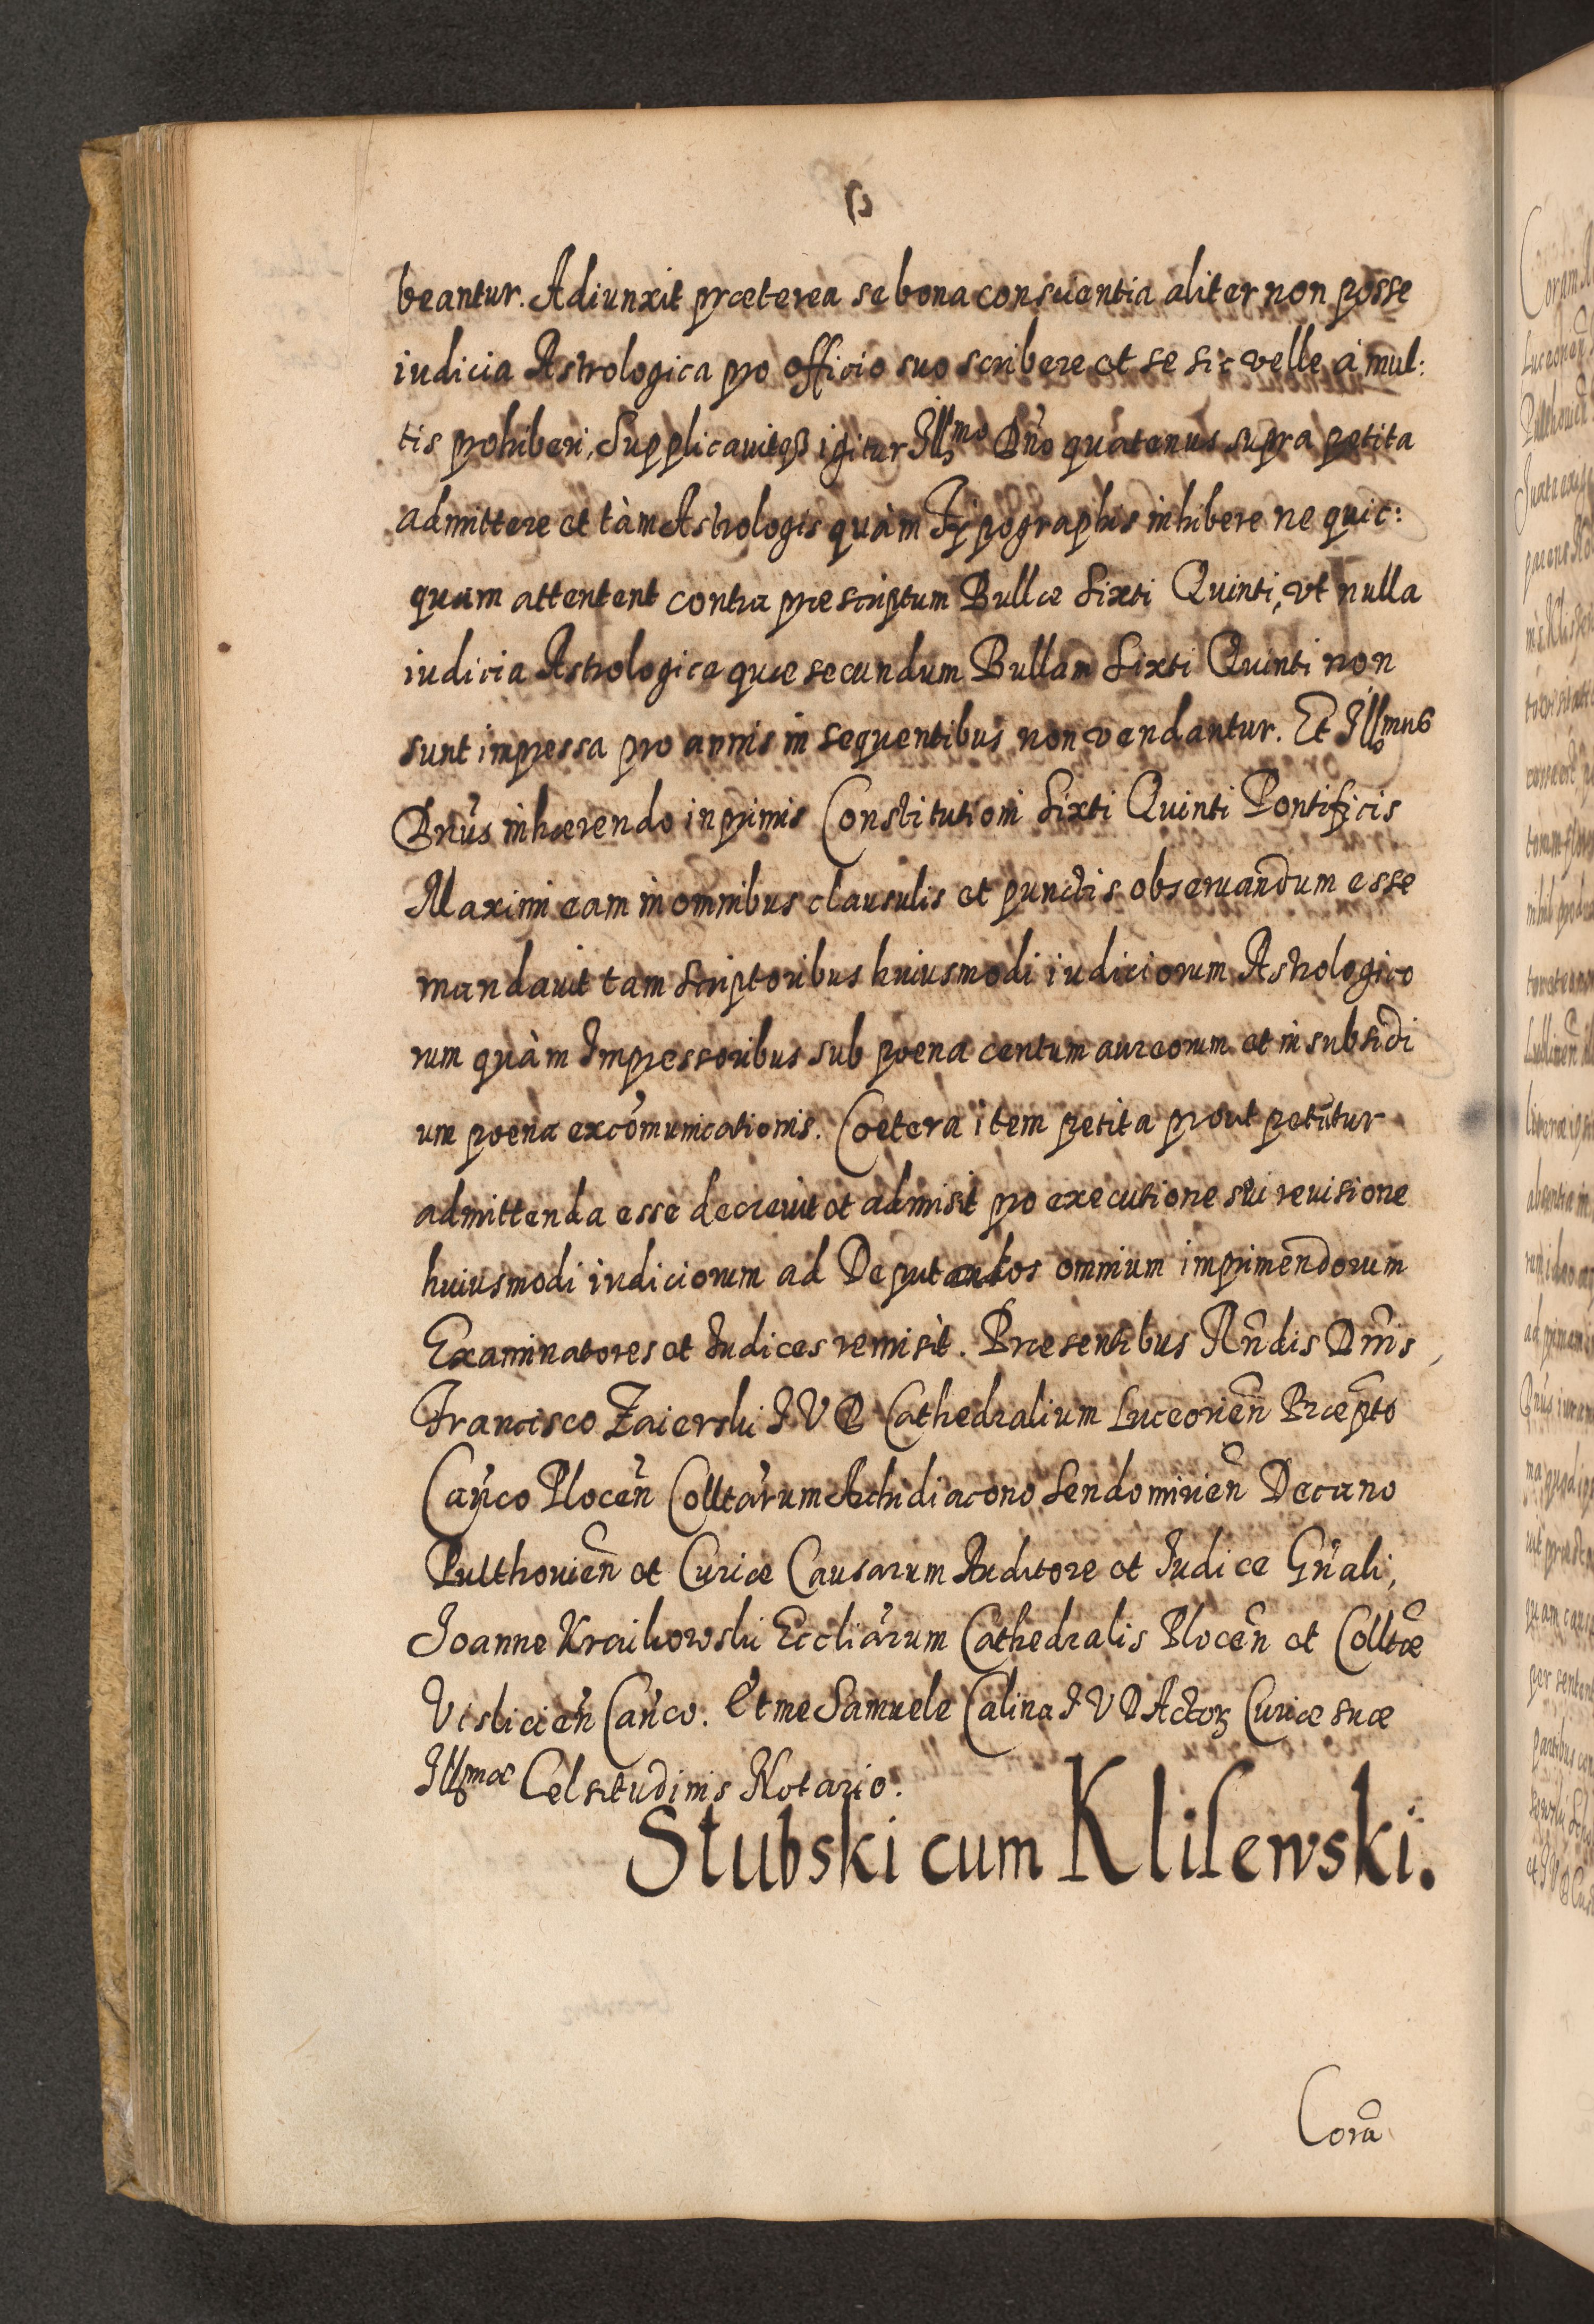 beantur. Adiunxit præterea se bona consuentia aliter non posse
iudicia Astrologica pro officio suo scribere et se sic velle à mul:
tis prohiberi, Supplicauitqꝫ igitur Illmo Dn̄o quatenus supra petita
admittere et tàm Astrologis quàm Typographis inhibere ne quic:
quam attentent contra præscriptum Bullæ Sixti Quinti, vt nulla
iudicia Astrologica quæ secundum Bullam Sixti Quinti non
sunt impressa pro annis in sequentibus non vendantur. Et Illmus
Dn̄us inhærendo inprimis Constitutioni Sixti Quinti Pontificis
Maximi eam in omnibus clausulis et punctis obseruandum esse
mandauit tam Scriptoribus huiusmodi iudiciorum Astrologico
rum quàm Impressoribus sub poena centum aureorum et in subsidi
um poena excōmunicationis. Coetera item petita prout petūtur
admittenda esse decreuit et admisit pro executione sui reuisione
huiusmodi iudiciorum ad Deputandos omnium imprimendorum
Examinatores et Iudices remisit. Præsentibus Rn̄dis Dn̄is
Francisco Zaierski I V D Cathedralium Luceorien̄ Præpto
Can̄co Plocen̄ Colltārum Archidiacono Sendomirien̄ Decano
Pulthouien̄ et Curiæ Causarum Auditore et Iudice Gn̄ali,
Joanne Kraikowski Eccliārum Cathedralis Plocen̄ et Colltæ
Vislicien̄ Can̄co. Et me Samuele Calina I V D Actorꝫ Curiæ suæ
Illmæ Celsitudinis Notario.
Stubski cum Klilewski.
Corā